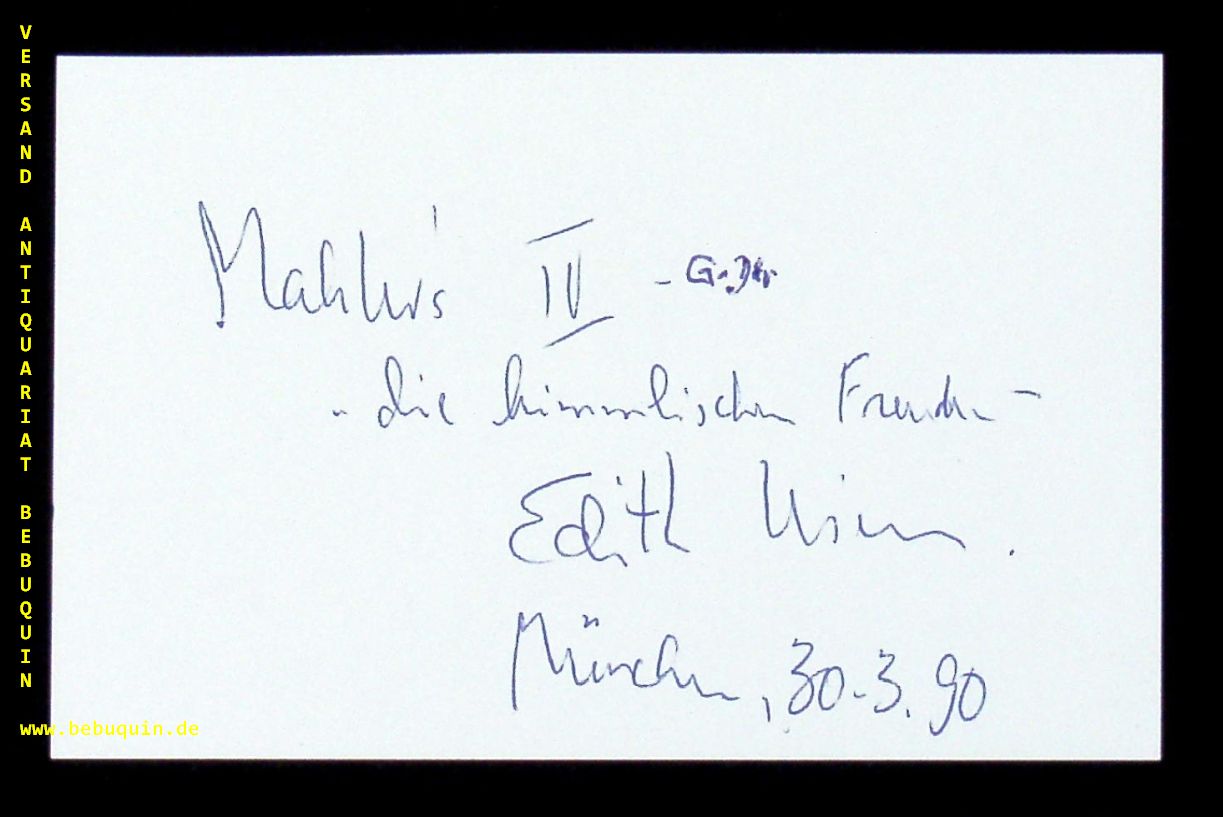 VERSAND ANTIQUARIAT BEBUQUIN
www.bebuquin.de
Mahler's IV - G-Dur
- die himmlischen Freuden -
Edith Wiens.
München, 30.3.90